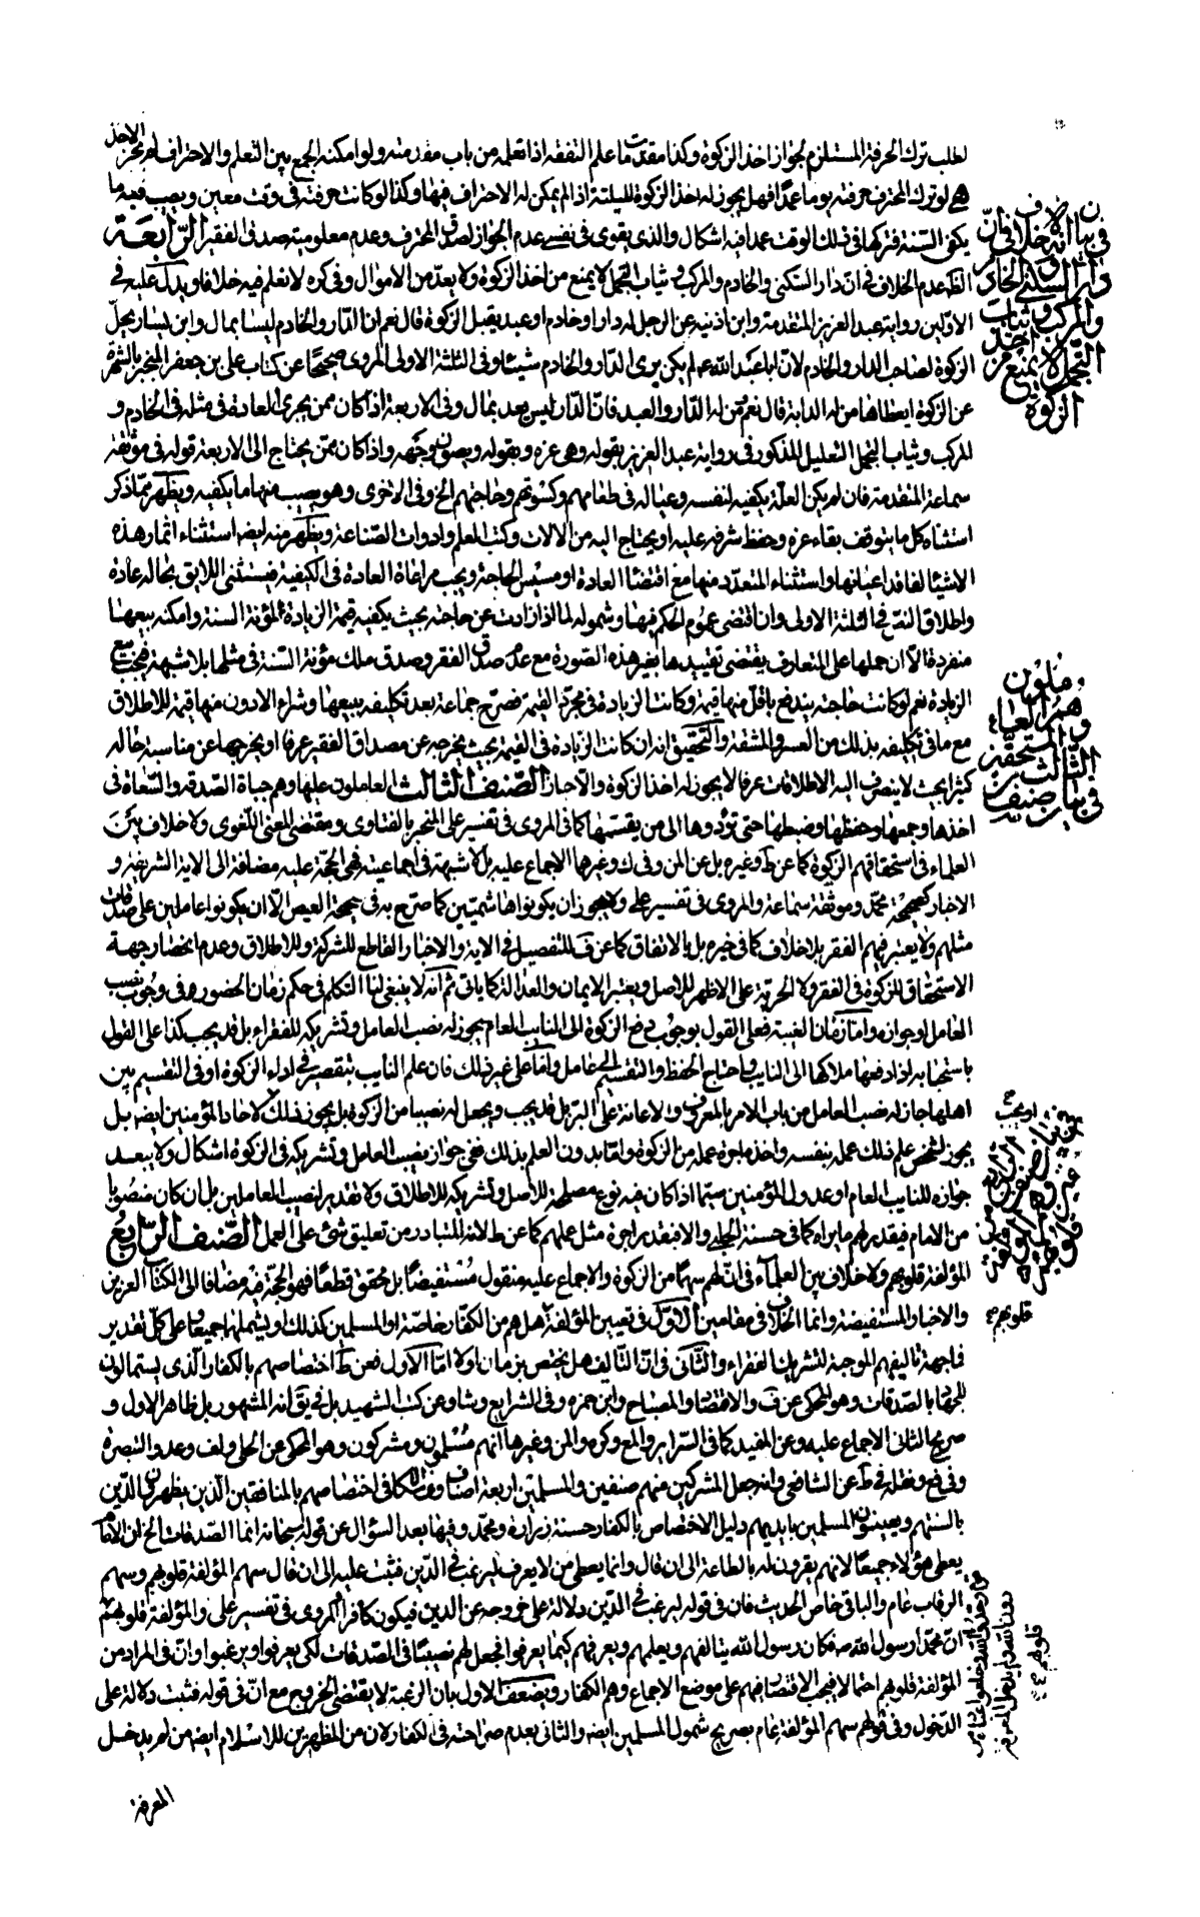 لطلب ترك الحرفة المستلزم لجواز اخذ الزكوة وكذا مقدمات ما علم التفقه اذا تعلمه من باب مقدمته ولو امكنه الجمع بين التعلم والاحتراف لم يجز الاخذ
لو ترك المحترف حرفته يوما عمدا فهل يجوز له اخذ الزكوة لليلته اذا لم يمكن له الاحتراف فيها وكذا لو كانت حرفته في وقت معين ويصيب فيه ما
يكفي السنة فتركها في ذلك الوقت عمدا فيه اشكال والذي يقوى في نفسي عدم الجواز لصدق المحترف وعدم معلومية صدق الفقير الرابعة
الظ عدم الخلاف في ان دار السكنى والخادم والمركب وثياب التجمل لا يمنع من اخذ الزكوة ولا يعد من الاموال وفي كره لا نعلم فيه خلافا ويدل عليه في
الاولين رواية عبد العزيز المتقدمة وابن اذينه عن الرجل له دار او خادم او عبد يقبل الزكوة قال نعم ان الدار والخادم ليسا بمال وابن يسار يحل
الزكوة لصاحب الدار والخادم لان ابا عبد الله ع لم يكن يرى الدار والخادم شيئا وفي الثلثة الاولى المروي صحيحا عن كتاب علي بن جعفر
عن الزكوة ايعطاها من له الدابة قال نعم ومن له الدار والعبد فان الدار ليس يعد بمال وفي الاربعة اذا كان ممن يجرى العادة في مثله في الخادم و
المركب وثياب التجمل التعليل المذكور في رواية عبد العزيز بقوله وهي عزه وبقوله ويصون وجهه واذا كان ممن يحتاج الى الاربعة قوله في موثقة
سماعة المتقدمة فان لم يكن الغلة يكفيه لنفسه وعياله في طعامهم وكسوتهم وحاجتهم الخ وفي الاخرى وهو يصيب منها ما يكفيه ويظهر مما ذكر
استثناء كل ما يتوقف بقاء عزه وحفظ شرفه عليه او يحتاج اليه من الالات وكتب العلم وادوات الصناعة ويظهر منه ايضه استثناء اثمار هذه
الاشيا لفاقد اعيانها واستثناء المتعدد منها مع اقتضاء العادة او مسيس الحاجة ويجب مراعاة العادة في الكيفية فيستثنى اللايق بحاله عادة
واطلاق النص في الثلثة الاولى وان اقتضى عموم الحكم فيها وشموله لما اذا زادت عن حاجته بحيث يكفيه قيمة الزيادة لمؤنة السنة وامكنه بيعها
منفردة الا ان حملها على المتعارف يقتضى تقييدها بغير هذه الصورة مع عدم صدق الفقر وصدق ملك مؤنة السنة في مثلها بلا شبهة فيجب بيع
الزيادة نعم لو كانت حاجته يندفع باقل منها قيمة وكانت الزيادة في مجرد القيمة فصرح جماعة بعد تكليفه ببيعها وشراء الادون منها قيمة للاطلاق
مع ما في تكليفه بذلك من العسر والمشقة والتحقيق انه ان كانت الزيادة في القيمة بحيث يخرجه عن مصداق الفقير عرفا او يخرجها عن مناسبة حاله
كثيرا بحيث لا ينصرف اليه الاطلاقات عرفا لا يجوز له اخذ الزكوة والا جاز الصنف الثالث العاملون عليها وهم جباة الصدقة والسعاة في
اخذها وجمعها وحفظها وضبطها حتى تؤدوها الى من يقسمها كما في المروي في تفسير علي المنجبر بالفتاوى ومقتضى المعنى اللغوى ولا خلاف بين
العلماء في استحقاقهم الزكوة كما عن ط وغيره بل عن المن وفي ك وغيرها الاجماع عليه بل لا شبهة في اجماعيته فهي الحجة عليه مضافة الى الاية الشريفة و
الاخبار كصحيحة محمد وموثقة سماعة والمروي في تفسير علي ولا يجوز ان يكونوا هاشميين كما صرح به في صحيحة العيص الا ان يكونوا عاملين على صدقات
مثلهم ولا يعتبر فيهم الفقر بلا خلاف كما في خيره بل بالاتفاق كما عن ف للتفصيل في الاية والاخبار القاطع للشركة وللاطلاق وعدم انحصار جهة
الاستحقاق للزكوة في الفقر ولا الحرية على الاظهر للاصل ويعتبر الايمان والعدالة كما ياتي ثم انه لا ينبغي لنا التكلم في حكم زمان الحضور في وجوب نصب
العامل وجوازه واما زمان الغيبة فعلى القول بوجوب دفع الزكوة الى النايب العام يجوز له نصب العامل وتشريكه للفقراء بل قد يجب كذا على القول
باستحبابه اذا دفعها ملاكها الى النايب واحتاج الحفظ والتقسيم الى عامل واما على غير ذلك فان علم النايب بتقصير في اداء الزكوة او في التقسيم بين
اهلها جاز له نصب العامل من باب الامر بالمعروف والاعانة على البر بل قد يجب ويجعل له نصيبا من الزكوة بل يجوز ذلك لاحاد المؤمنين ايضه بل
يجوز لشخص علم ذلك عمله بنفسه واخذ اجرة عمله من الزكوة واما بدون العلم بذلك ففي جواز نصب العامل وتشريكه في الزكوة اشكال ولا يبعد
جوازه للنايب العام او عدول المؤمنين سيما اذا كان فيه نوع مصلحة للاصل وتشريكه للاطلاق ولا تقدير لنصيب العاملين بل ان كان منصوبا
من الامام فيقدر لهم ما يراه كما في حسنة الحلبي والا فبقدر اجرة مثل عملهم كما عن ط لانه المتبادر من تعليق شئ على العمل الصنف الرابع
المؤلفة قلوبهم ولا خلاف بين العلماء في ان لهم سهما من الزكوة والاجماع عليه منقول مستفيضا بل محقق قطعا فهو الحجة فيه مضافا الى الكتاب العزيز
والاخبار المستفيضة وانما الخلاف في مقامين الاول في تعيين المؤلفة هل هم من الكفار خاصة او المسلمين كذلك او يشملها جميعا وعلى كل تقدير
فما جهة تاليفهم الموجبة لتشريك الفقراء والثاني في ان التاليف هل يختص بزمان اولا اما الاول فعن ط اختصاصهم بالكفار الذي يستمالون
للجهاد بالصدقات وهو المحكي عن ف والاقتصاد والمصباح وابن حمزه وفي الشرايع وشا وعن كتب الشهيد بل في يق انه المشهور بل ظاهر الاول و
صريح الثاني الاجماع عليه وعن المفيد كما في السراير والمع وكره والمن وغيرها انهم مسلمون ومشركون وهو المحكي عن الحلي ولف وعد والتبصرة
وفي فع وفعله في ط عن الشافعي وانه جعل المشركين منهم صنفين والمسلمين اربعة اصناف وعن الاسكافي اختصاصهم بالمنافقين الذين يظهرون الدين
بالسنتهم ويعينون المسلمين بايديهم دليل الاختصاص بالكفار حسنة زرارة ومحمد وفيها بعد السؤال عن قوله سبحانه انما الصدقات الخ ان الامام
يعطي هؤلاء جميعا لانهم يقرون له بالطاعة الى ان قال وانما يعطي من لا يعرف ليرغب في الدين فيثبت عليه الى ان قال سهم المؤلفة قلوبهم وسهم
الرقاب عام والباقي خاص الحديث فان في قوله ليرغب في الدين دلالة على خروجه عن الدين فيكون كافرا المروي في تفسير علي والمؤلفة قلوبهم
ان محمدا رسول الله صه فكان رسول الله يتالفهم ويعلمهم ويعرفهم كيما يعرفوا فجعل لهم نصيبا في الصدقات لكي يعرفوا ويرغبوا وان في المراد من
المؤلفة قلوبهم احتمالا فيجب الاقتصار فيهم على موضع الاجماع وهم الكفار ويضعف الاول بان الرغبة لا يقتضي الخروج مع ان في قوله فيثبت دلالة على
الدخول وفي قولهم سهم المؤلفة عام بصريح شمول المسلمين ايضه والثاني بعدم صراحته في الكفار لان من المظهرين للاسلام ايضه من لم يدخل
المعرفة
في بيان
انه لا خلاف في ان
دار السكنى والخادم
والمركب وثياب
التجمل لا يمنع من اخذ
الزكوة
في بيان صنف
الثالث من
المستحقين
وهم العاملون
قلوبهم